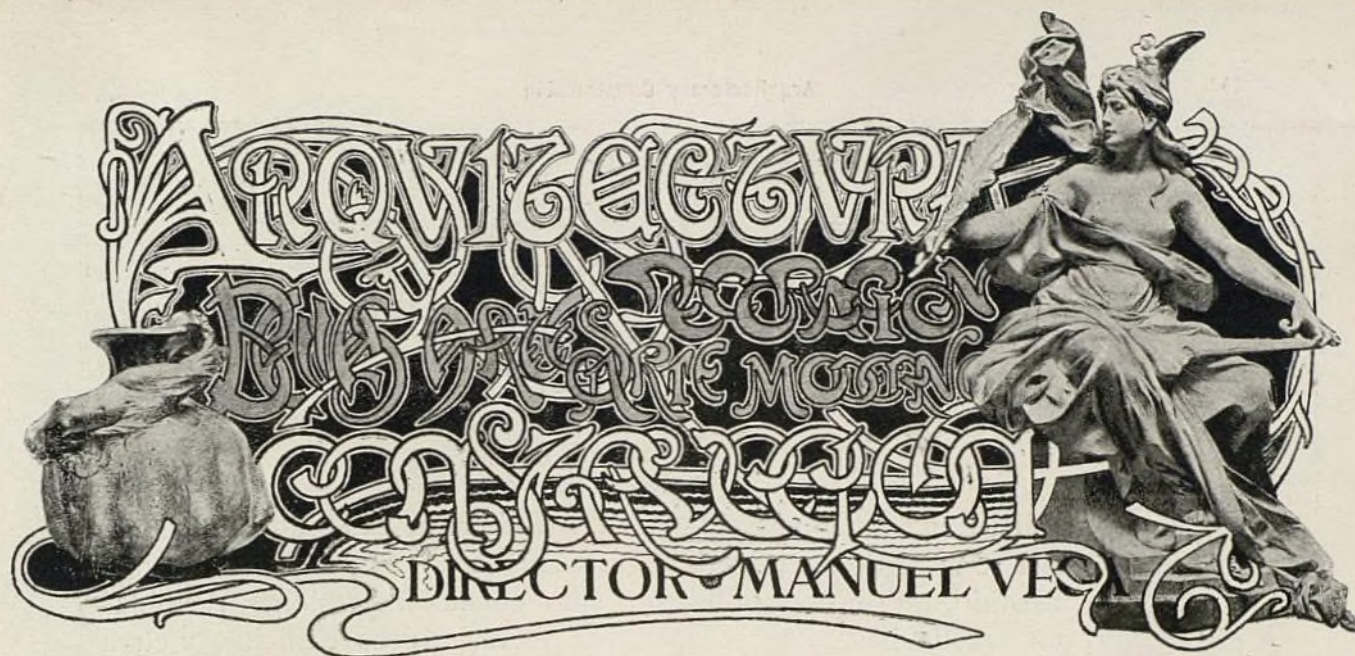 ARQVITECTVRA
BELLAS ARTES DECORACION
ARTE MODERNO
CONSTRVCCION
DIRECTOR • MANUEL VEGA